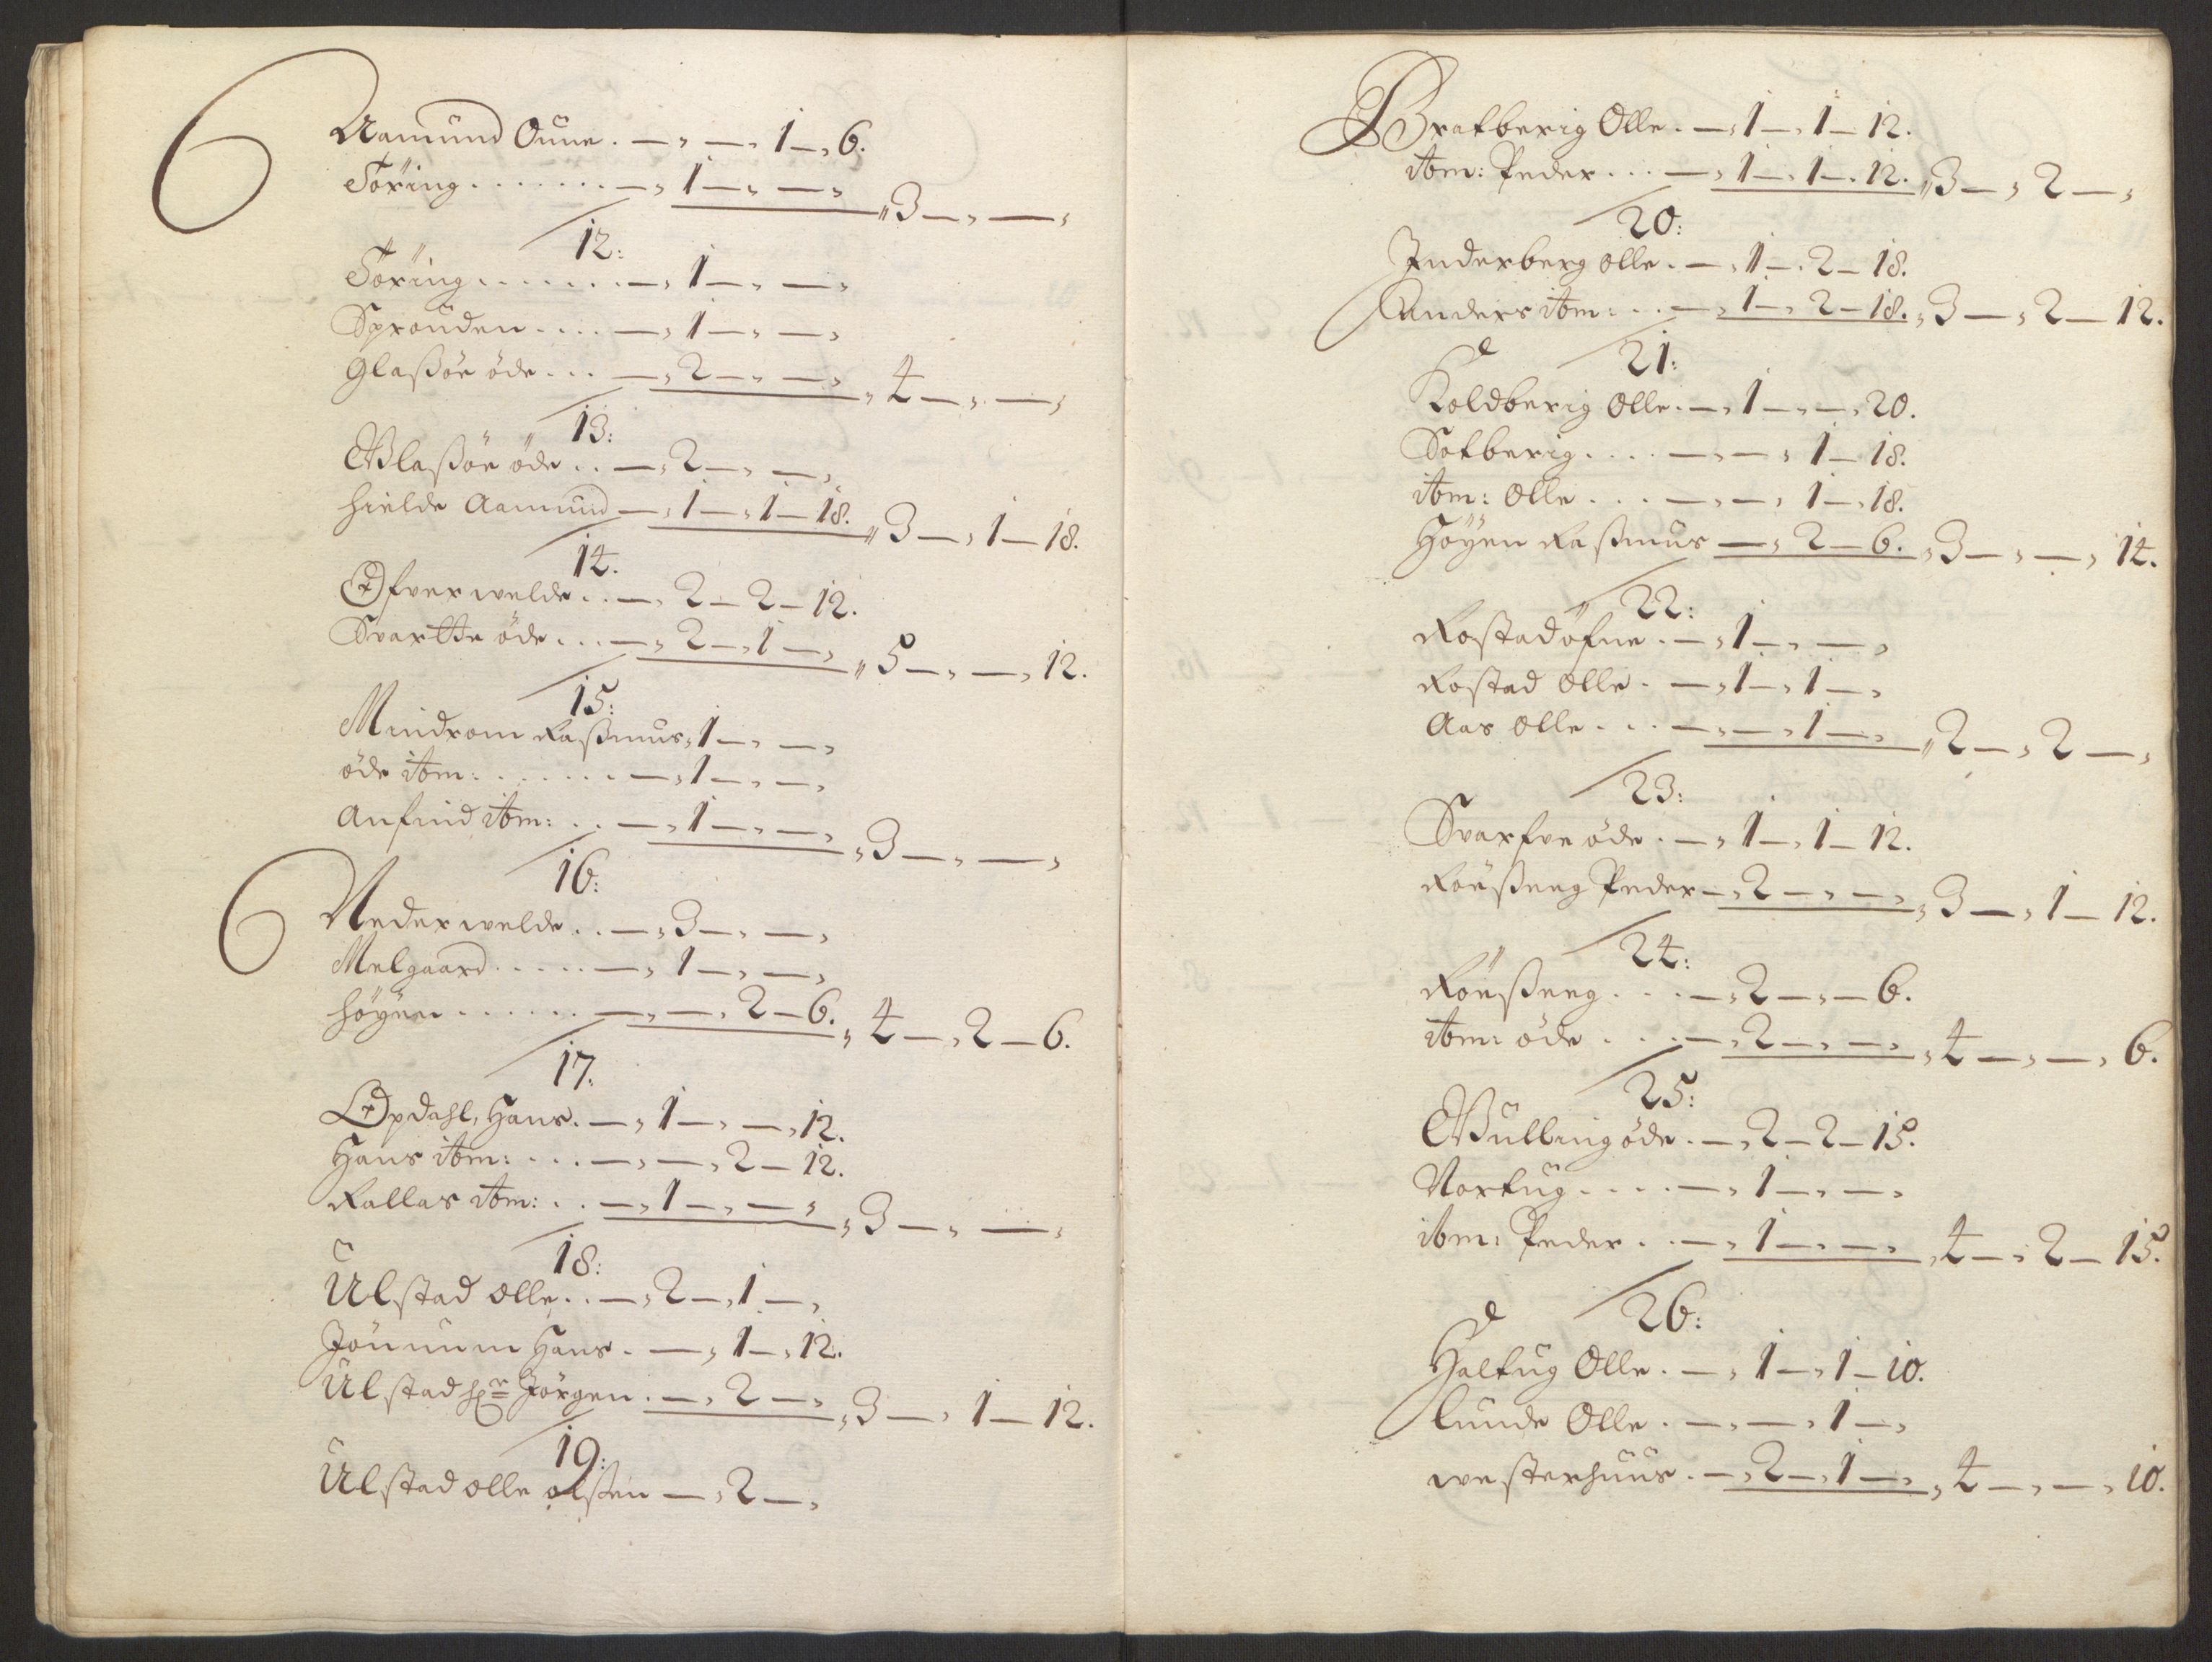 Aamund Oune . — „ — „ 1 — „ 6.
Töring . . . . . . . — „ 1 — „ — „ „ 3 — „ — „
12:
Töring . . . . . . . — „ 1 — „ — „
Sprauden . . . . — „ 1 — „ — „
Glaßöe öde . . . — „ 2 — „ — „ „ 4 — „ — „
13:
Glaßöe öde . . — „ 2 — „ — „
hielde Aamund — „ 1 — „ 1 — 18. „ 3 — „ 1 — 18.
14.
Ofver welde . . — „ 2 — 2 — 12.
Svartte öde . . . — „ 2 — „ 1 — „ „ 5 — „ — „ 12.
15:
Mindrom Raßmus „ 1 — „ — „
öde itm: . . . . . . — „ 1 — „ — „
Anfind itm: . . — „ 1 — „ — „ „ 3 — „ — „
16:
Neder welde . . — „ 3 — „ — „
Melgaard . . . . . — „ 1 — „ — „
höyen . . . . . . — „ — „ 2 — 6. „ 4 — „ 2 — 6.
17:
Opdahl, Hans . — „ 1 — „ — „ 12.
Hans itm: . . . — „ — „ 2 — 12.
Kallas itm: . . — „ 1 — „ — „ „ 3 — „ — „
18:
Ulstad olle . . — „ 2 — „ 1 — „
Jönnum Hans . — „ 1 — „ 12.
Ulstad hr Jörgen . — „ 2 — „ „ 3 — „ 1 — 12.
19:
Ulstad olle olßen — „ 2 — „
Bratberig Olle . — „ 1 — „ 1 — 12.
itm: Peder . . . — „ 1 — „ 1 — 12. „ 3 — „ 2 — „
20:
Inderberg olle . — „ 1 — . 2 — 18.
Anders itm: . . — „ 1 — „ 2 — 18. „ 3 — „ 2 — 12.
21:
Koldberig Olle . — „ 1 — „ — „ 20.
Sotberig . . . . — „ — „ 1 — 18.
itm: Olle . . . — „ — „ 1 — „ 18.
Höyen Raßmus — „ 2 — 6. „ 3 — „ — „ 14.
22:
Rostad öfne . — „ 1 — „ — „
Rostad olle . — „ 1 — „ 1 — „
Aas olle . . . — „ — „ 1 — „ „ 2 — „ 2 — „
23:
Svarfve öde . — „ 1 — „ 1 — 12.
Röeßeng Peder — „ 2 — „ — „ „ 3 — „ 1 — 12.
24:
Röeßeng . . . — „ 2 — „ — 6.
itm: öde . . . — „ 2 — „ — „ „ 4 — „ — „ 6.
25:
Wulling öde . — „ 2 — 2 — 15.
Nortug . . . . — „ 1 — „ — „
ibm: Peder . . — „ 1 — „ — „ „ 4 — „ 2 — 15.
26:
Haltug Olle . — „ 1 — „ 1 — 10.
Lunde Olle . — „ — „ 1 — „
westerhuus . — „ 2 — „ 1 — „ „ 4 — „ — „ 10.